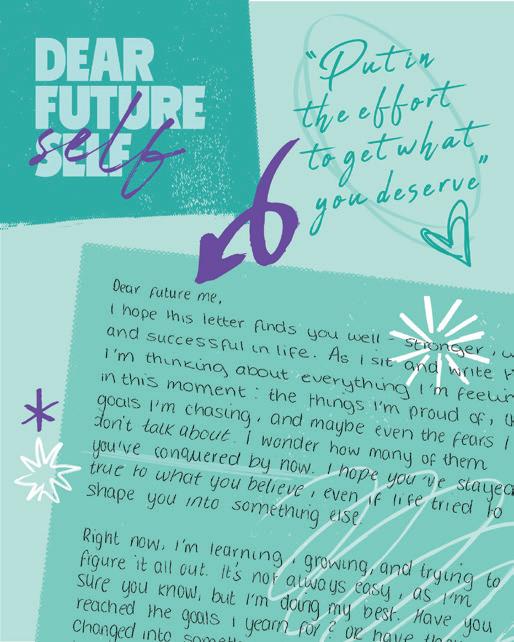 DEAR
FUTURE
SELF
self
"Put in
the effort
to get what
you deserve"
Dear future me,
I hope this letter finds you well - stronger,
and successful in life. As I sit and write
I'm thinking about everything I'm
in this moment: the things I'm proud of,
goals I'm chasing, and maybe even the fears I
don't talk about. I wonder how many of them
you've conquered by now. I hope you've
true to what you believe, even if life tried to
shape you into something else.
Right now, I'm learning, growing, and trying to
figure it all out. It's not always easy, as I'm
sure you know, but I'm doing my best. Have you
reached the goals I yearn for? Or have
changed into